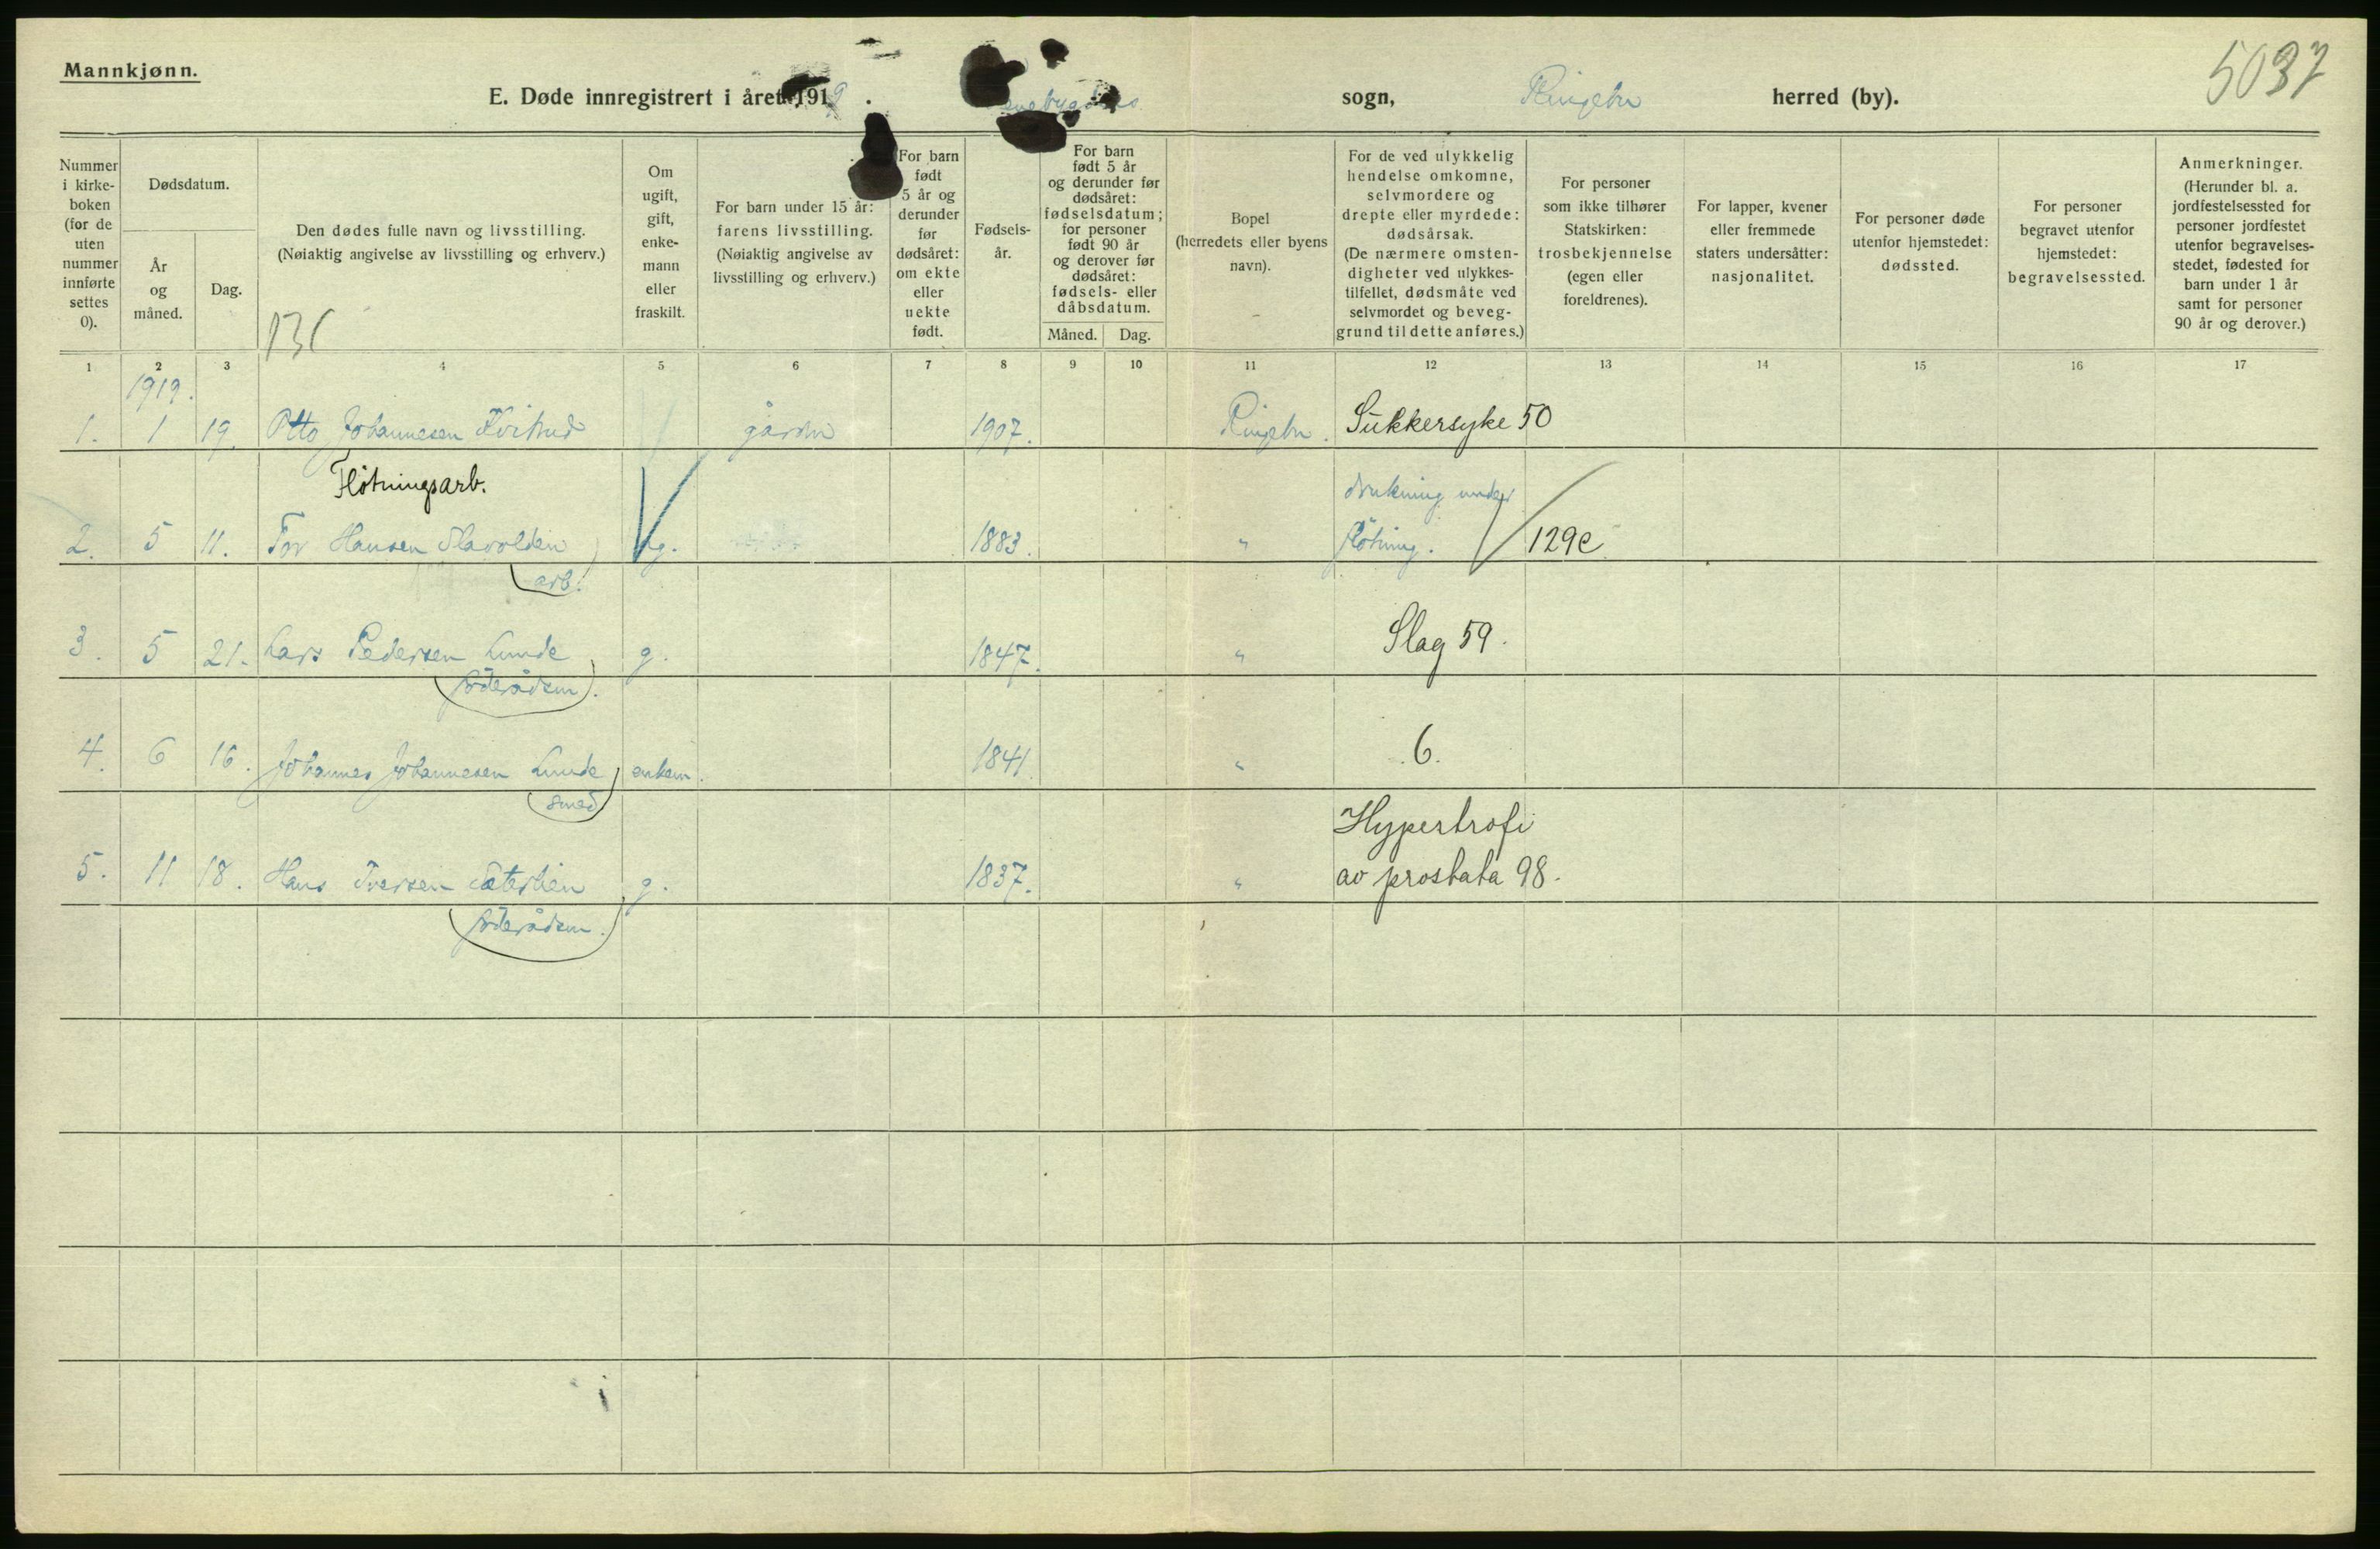 Mannkjønn.
5037
E. Døde innregistrert i året 1919. sogn, Ringebu herred (by).
Nummer i kirkeboken (for de uten nummer innførte settes 0).
Dødsdatum.
År og måned.
Dag.
Den dødes fulle navn og livsstilling.
(Nøiaktig angivelse av livsstilling og erhverv.)
131
Om ugift, gift, enkemann eller fraskilt.
For barn under 15 år: farens livsstilling.
(Nøiaktig angivelse av livsstilling og erhverv.)
For barn født 5 år og derunder før dødsåret: om ekte eller uekte født.
Fødselsår.
For barn født 5 år og derunder før dødsåret: fødselsdatum; for personer født 90 år og derover før dødsåret: fødsels- eller dåbsdatum.
Måned. Dag.
Bopel (herredets eller byens navn).
For de ved ulykkelig hendelse omkomne, selvmordere og drepte eller myrdede: dødsårsak.
(De nærmere omstendigheter ved ulykkestilfellet, dødsmåte ved selvmordet og beveggrund til dette anføres.)
For personer som ikke tilhører Statskirken: trosbekjennelse (egen eller foreldrenes).
For lapper, kvener eller fremmede staters undersåtter: nasjonalitet.
For personer døde utenfor hjemstedet: dødssted.
For personer begravet utenfor hjemstedet: begravelsessted.
Anmerkninger.
(Herunder bl. a. jordfestelsessted for personer jordfestet utenfor begravelsesstedet, fødested for barn under 1 år samt for personer 90 år og derover.)
1 2 3 4 5 6 7 8 9 10 11 12 13 14 15 16 17
1919.
1. 1 19. Otto Johannesen gårdbr 1907. Ringebu. Sukkersyke 50
Fløtningsarb. drukning under
2. 5 11. Tor Hansen g. 1883. " fløtning. 129c
arb.
3. 5 21. Lars Pedersen Lunde g. 1847. " Slag 59.
(föderådsm).
4. 6 16. Johannes Johannesen Lunde enkem. 1841. " 6.
(smed)
Hypertrofi
5. 11 18. Hans Iversen Sæterlien g. 1837. " av prostata 98.
(föderådsm.)